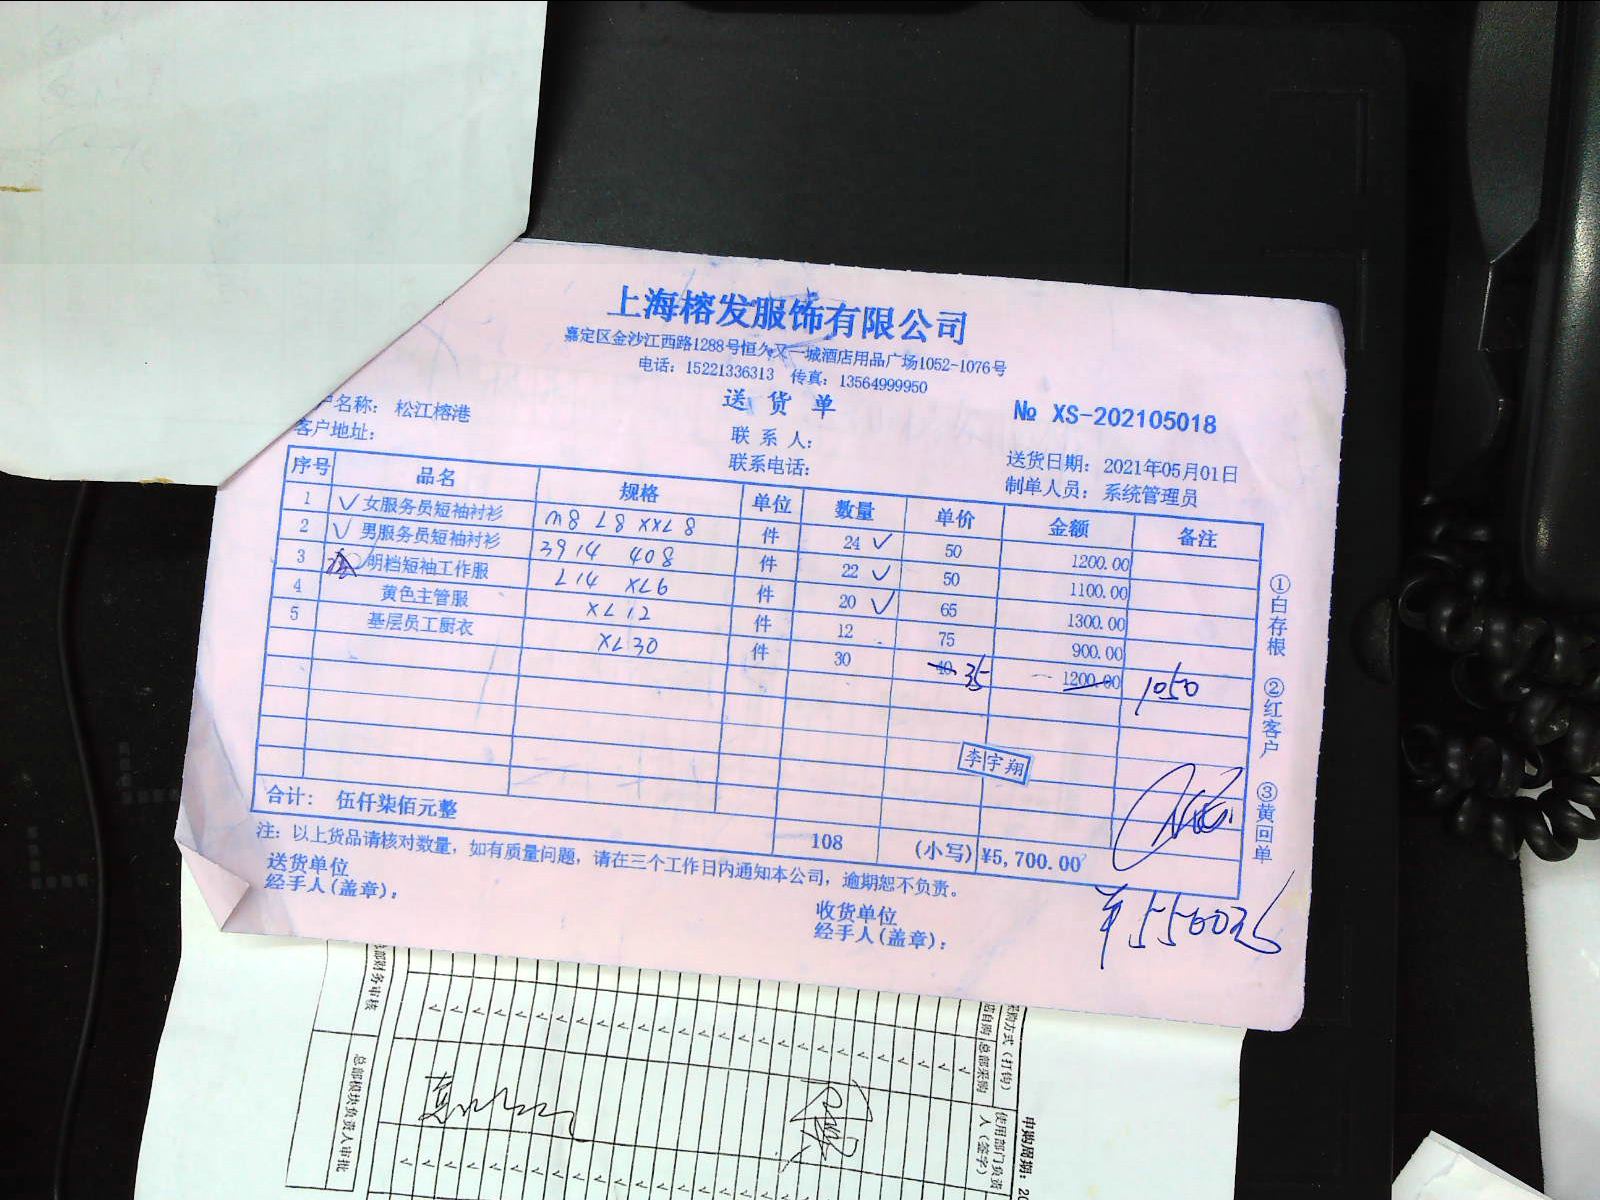 上海榕发服饰有限公司
嘉定区金沙江西路1288号恒久又一城酒店用品广场1052-1076号
电话：15221336313 传真：13564999950
送 货 单
№ XS-202105018
户名称： 松江榕港
客户地址：
联 系 人：
联系电话：
送货日期： 2021年05月01日
制单人员： 系统管理员
序号 品名 规格 单位 数量 单价 金额 备注
1 ✓ 女服务员短袖衬衫 M8 L8 XXL8 件 24 ✓ 50 1200.00
2 ✓ 男服务员短袖衬衫 3914 408 件 22 ✓ 50 1100.00
3 明档短袖工作服 L14 XL6 件 20 ✓ 65 1300.00
4 黄色主管服 XL12 件 12 75 900.00
5 基层员工厨衣 XL30 件 30 40 35 1200.00 1050
李宇翔
合计： 伍仟柒佰元整 108 (小写) ¥5,700.00
注：以上货品请核对数量，如有质量问题，请在三个工作日内通知本公司，逾期恕不负责。
送货单位
经手人(盖章)：
收货单位
经手人(盖章)：
①白存根 ②红客户 ③黄回单
部财务审核
总部模块负责人审批
采购方式（打钩）
店自购
总部采购
使用部门负责人（签字）
申购周期：20